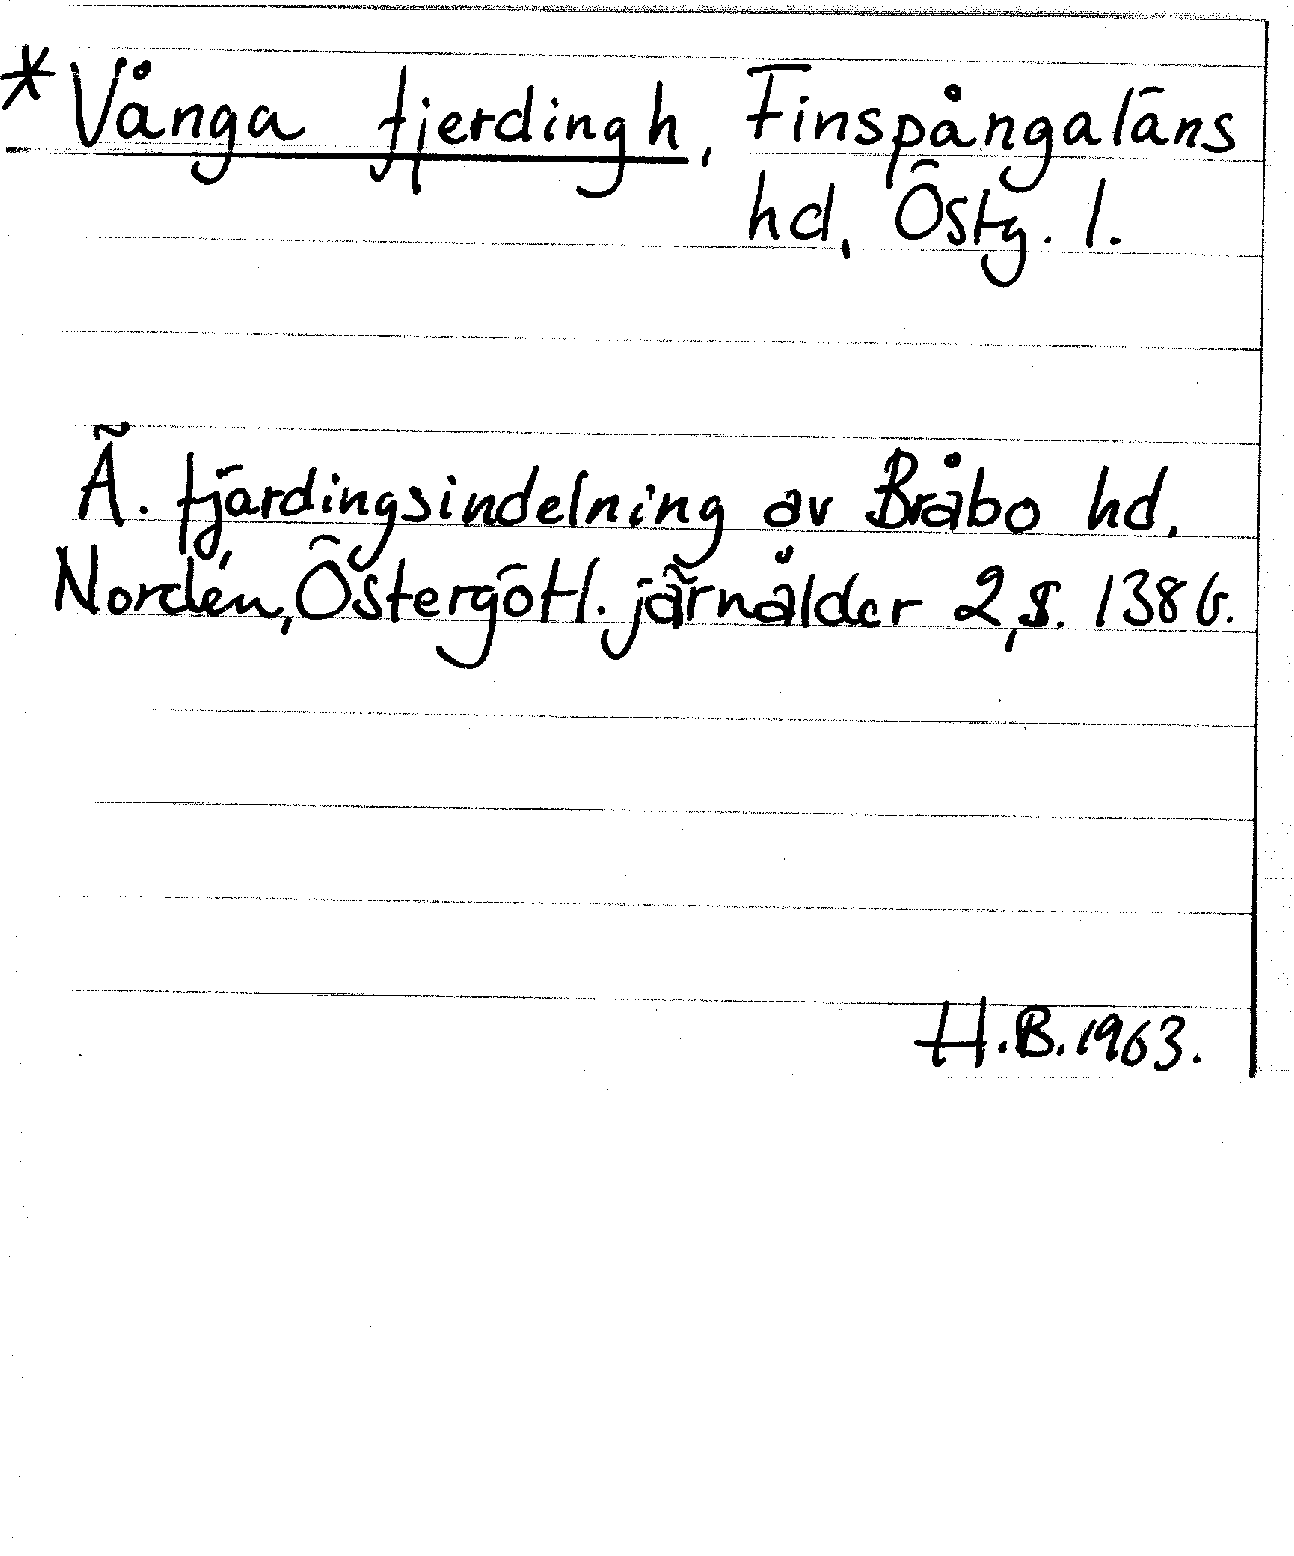 * Vånga fjerdingh, Finspångaläns
hd, Östg. l.
Ä. fjärdingsindelning av Bråbo hd.
Nordén, Östergötl. järnålder 2, s. 138 b.
H.B. 1963.